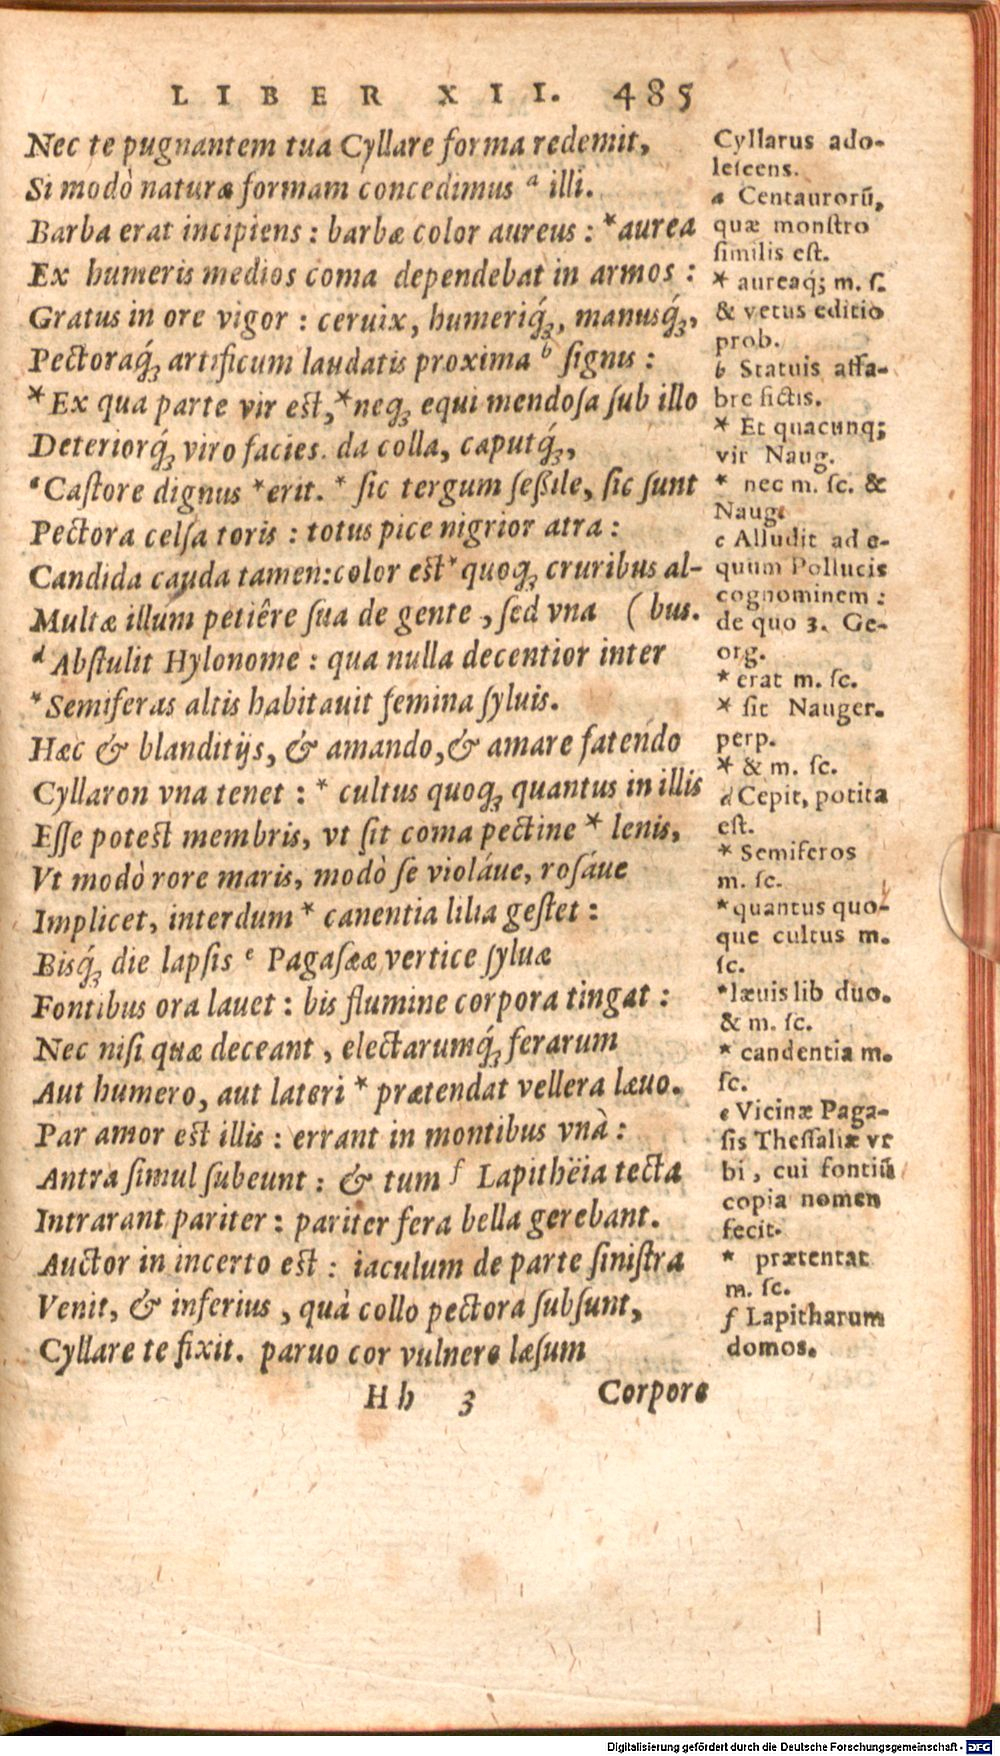 LIBER XII. 485
Nec te pugnantem tua Cyllare forma redemit,
Si modò naturæ formam concedimus ᵃ illi.
Barba erat incipiens : barbæ color aureus : *aurea
Ex humeris medios coma dependebat in armos :
Gratus in ore vigor : ceruix, humeriq́ꝫ, manusq́ꝫ,
Pectoraq́ꝫ artificum laudatis proxima ᵇ signis :
*Ex qua parte vir est,*neqꝫ equi mendosa sub illo
Deteriorq́ꝫ viro facies. da colla, caputq́ꝫ,
ᶜCastore dignus *erit. * sic tergum seßile, sic sunt
Pectora celsa toris : totus pice nigrior atra :
Candida cauda tamen:color est*quoqꝫ cruribus al-
Multæ illum petiêre sua de gente , sed vna ( bus.
ᵈAbstulit Hylonome : qua nulla decentior inter
*Semiferas altis habitauit femina syluis.
Hæc & blanditijs, & amando,& amare fatendo
Cyllaron vna tenet : * cultus quoqꝫ quantus in illis
Esse potest membris, vt sit coma pectine * lenis,
Vt modò rore maris, modò se violáue, rosáue
Implicet, interdum * canentia lilia gestet :
Bisq́ꝫ die lapsis ᵉ Pagasææ vertice syluæ
Fontibus ora lauet : bis flumine corpora tingat :
Nec nisi quæ deceant , electarumq́ꝫ ferarum
Aut humero, aut lateri * prætendat vellera læuo.
Par amor est illis : errant in montibus vnà :
Antra simul subeunt : & tum ᶠ Lapithëia tecta
Intrarant pariter : pariter fera bella gerebant.
Auctor in incerto est : iaculum de parte sinistra
Venit, & inferius , quà collo pectora subsunt,
Cyllare te fixit. paruo cor vulnere læsum
Hh 3 Corpore
Cyllarus ado-
lescens.
a Centaurorū,
quæ monstro
similis est.
* aureaq́; m. s.
& vetus editio
prob.
b Statuis affa-
bre fictis.
* Et quacunq;
vir Naug.
* nec m. sc. &
Naug.
c Alludit ad e-
quum Pollucis
cognominem :
de quo 3. Ge-
org.
* erat m. sc.
* sit Nauger.
perp.
* & m. sc.
d Cepit, potita
est.
* Semiferos
m. sc.
*quantus quo-
que cultus m.
sc.
*læuis lib duo.
& m. sc.
* candentia m.
sc.
e Vicinæ Paga-
sis Thessaliæ vr
bi , cui fontiū
copia nomen
fecit.
* prætentat
m. sc.
f Lapitharum
domos.
Digitalisierung gefördert durch die Deutsche Forschungsgemeinschaft - DFG